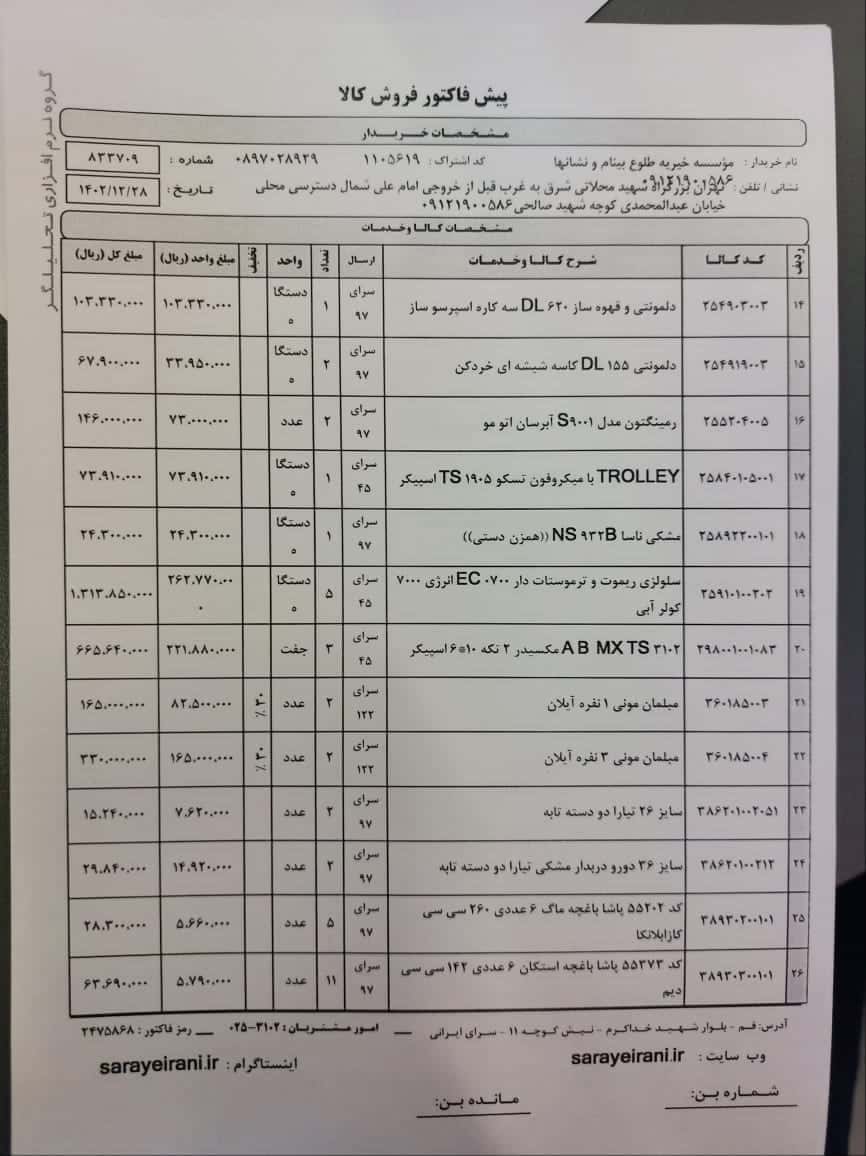 گروه نرم افزاری تحلیلگر
پیش فاکتور فروش کالا
مشخصات خریدار
نام خریدار : مؤسسه خیریه طلوع بینام و نشانها کد اشتراک : ۱۱۰۵۶۱۹ ۰۸۹۷۰۲۸۹۲۹ شماره : ۸۳۳۷۰۹
نشانی / تلفن : ۰۹۱۲۱۹۰۰۵۸۶ تهران بزرگراه شهید محلاتی شرق به غرب قبل از خروجی امام علی شمال دسترسی محلی تاریخ : ۱۴۰۲/۱۲/۲۸
خیابان عبدالمحمدی کوچه شهید صالحی ۰۹۱۲۱۹۰۰۵۸۶
مشخصات کالا وخدمات
ردیف کد کالا شرح کالا وخدمات ارسال تعداد واحد تخفیف مبلغ واحد (ریال) مبلغ کل (ریال)
۱۴ ۲۵۴۹۰۳۰۰۳ دلمونتی و قهوه ساز DL ۶۲۰ سه کاره اسپرسو ساز سرای ۹۷ ۱ دستگاه ۱۰۳،۳۳۰،۰۰۰ ۱۰۳،۳۳۰،۰۰۰
۱۵ ۲۵۴۹۱۹۰۰۳ دلمونتی DL ۱۵۵ کاسه شیشه ای خردکن سرای ۹۷ ۲ دستگاه ۳۳،۹۵۰،۰۰۰ ۶۷،۹۰۰،۰۰۰
۱۶ ۲۵۵۲۰۴۰۰۵ رمینگتون مدل S۹۰۰۱ آبرسان اتو مو سرای ۹۷ ۲ عدد ۷۳،۰۰۰،۰۰۰ ۱۴۶،۰۰۰،۰۰۰
۱۷ ۲۵۸۴۰۱۰۵۰۰۱ TROLLEY با میکروفون تسکو TS ۱۹۰۵ اسپیکر سرای ۴۵ ۱ دستگاه ۷۳،۹۱۰،۰۰۰ ۷۳،۹۱۰،۰۰۰
۱۸ ۲۵۸۹۲۲۰۰۱۰۱ مشکی ناسا NS ۹۳۲B ((همزن دستی)) سرای ۹۷ ۱ دستگاه ۲۴،۳۰۰،۰۰۰ ۲۴،۳۰۰،۰۰۰
۱۹ ۲۵۹۱۰۱۰۰۲۰۲ سلولزی ریموت و ترموستات دار EC ۰۷۰۰ انرژی ۷۰۰۰ سرای ۴۵ ۵ دستگاه ۲۶۲،۷۷۰،۰۰۰ ۱،۳۱۳،۸۵۰،۰۰۰
کولر آبی
۲۰ ۲۹۸۰۰۱۰۰۱۰۸۳ A B MX TS ۳۱۰۲ مکسیدر ۲ تکه ۱۰*۶ اسپیکر سرای ۴۵ ۳ جفت ۲۲۱،۸۸۰،۰۰۰ ۶۶۵،۶۴۰،۰۰۰
۲۱ ۳۶۰۱۸۵۰۰۳ مبلمان مونی ۱ نفره آیلان سرای ۱۲۲ ۲ عدد ۳۰ ٪ ۸۲،۵۰۰،۰۰۰ ۱۶۵،۰۰۰،۰۰۰
۲۲ ۳۶۰۱۸۵۰۰۴ مبلمان مونی ۳ نفره آیلان سرای ۱۲۲ ۲ عدد ۳۰ ٪ ۱۶۵،۰۰۰،۰۰۰ ۳۳۰،۰۰۰،۰۰۰
۲۳ ۳۸۶۲۰۱۰۰۲۰۵۱ سایز ۲۶ تیارا دو دسته تابه سرای ۹۷ ۲ عدد ۷،۶۲۰،۰۰۰ ۱۵،۲۴۰،۰۰۰
۲۴ ۳۸۶۲۰۱۰۰۲۱۲ سایز ۳۶ دورو دربدار مشکی تیارا دو دسته تابه سرای ۹۷ ۲ عدد ۱۴،۹۲۰،۰۰۰ ۲۹،۸۴۰،۰۰۰
۲۵ ۳۸۹۳۰۲۰۰۱۰۱ کد ۵۵۲۰۲ پاشا باغچه ماگ ۶ عددی ۲۶۰ سی سی سرای ۹۷ ۵ عدد ۵،۶۶۰،۰۰۰ ۲۸،۳۰۰،۰۰۰
کازابلانکا
۲۶ ۳۸۹۳۰۳۰۰۱۰۱ کد ۵۵۳۷۳ پاشا باغچه استکان ۶ عددی ۱۴۲ سی سی سرای ۹۷ ۱۱ عدد ۵،۷۹۰،۰۰۰ ۶۳،۶۹۰،۰۰۰
دیم
آدرس: قم - بلوار شهید خداکرم - نبش کوچه ۱۱ - سرای ایرانی — امور مشتریان : ۳۱۰۲-۰۲۵ — رمز فاکتور : ۲۴۷۵۸۶۸
وب سایت : sarayeirani.ir اینستاگرام : sarayeirani.ir
شماره بن: مانده بن: